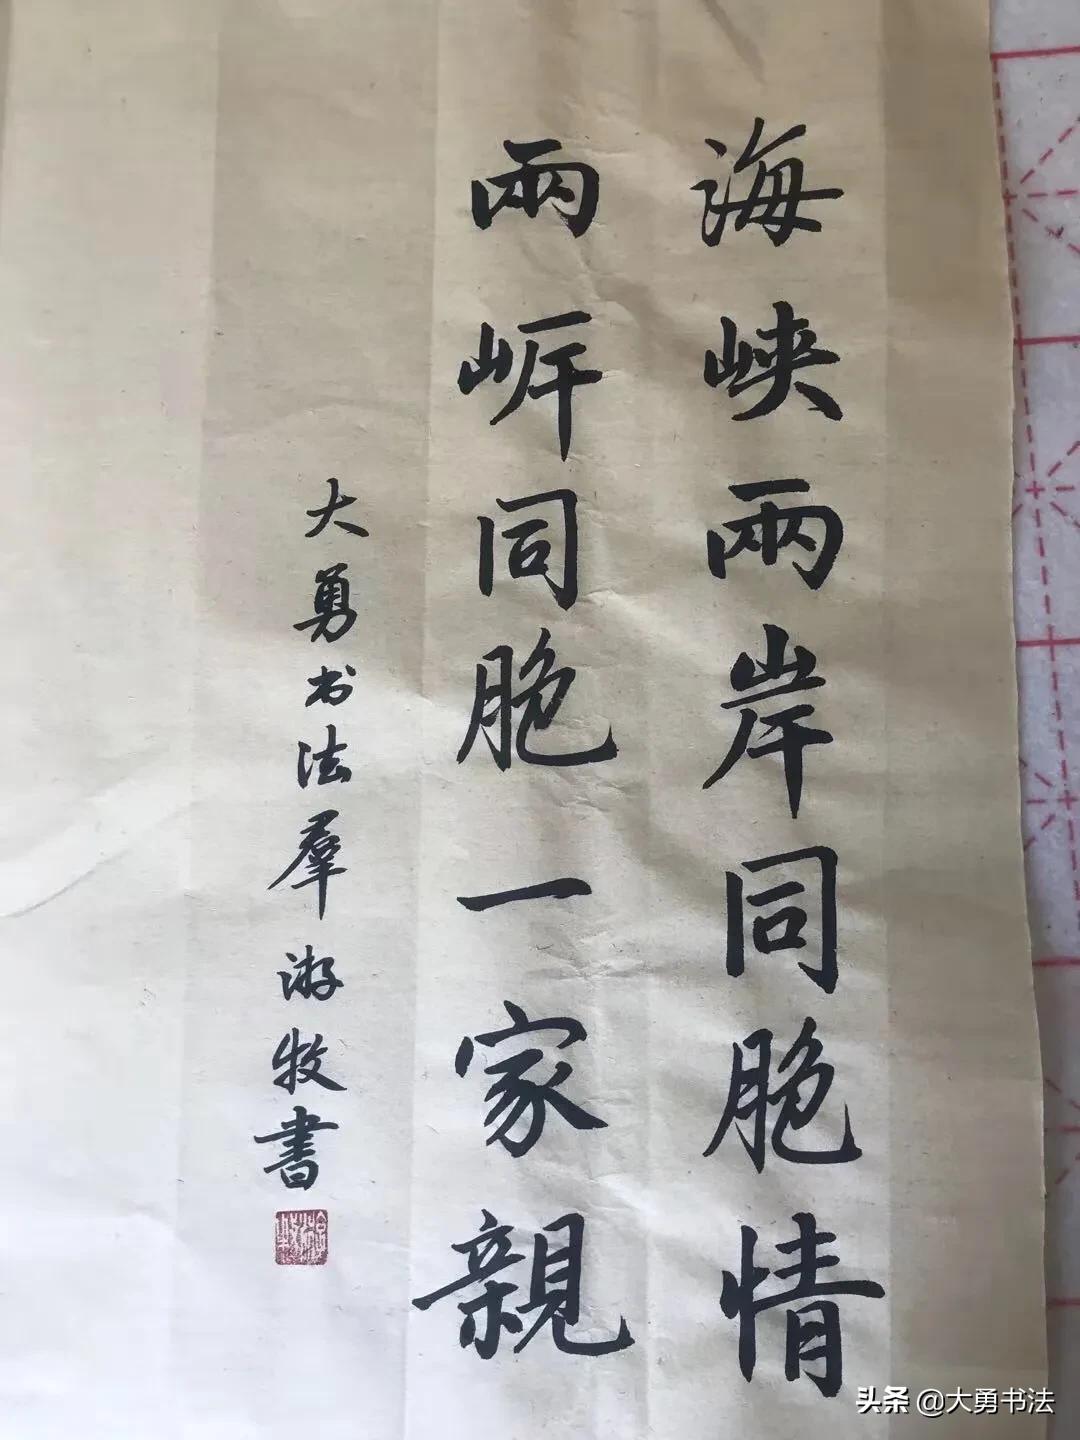 海峡兩岸同胞情
兩岓同胞一家親
大勇书法羣游牧書
头条 @大勇书法